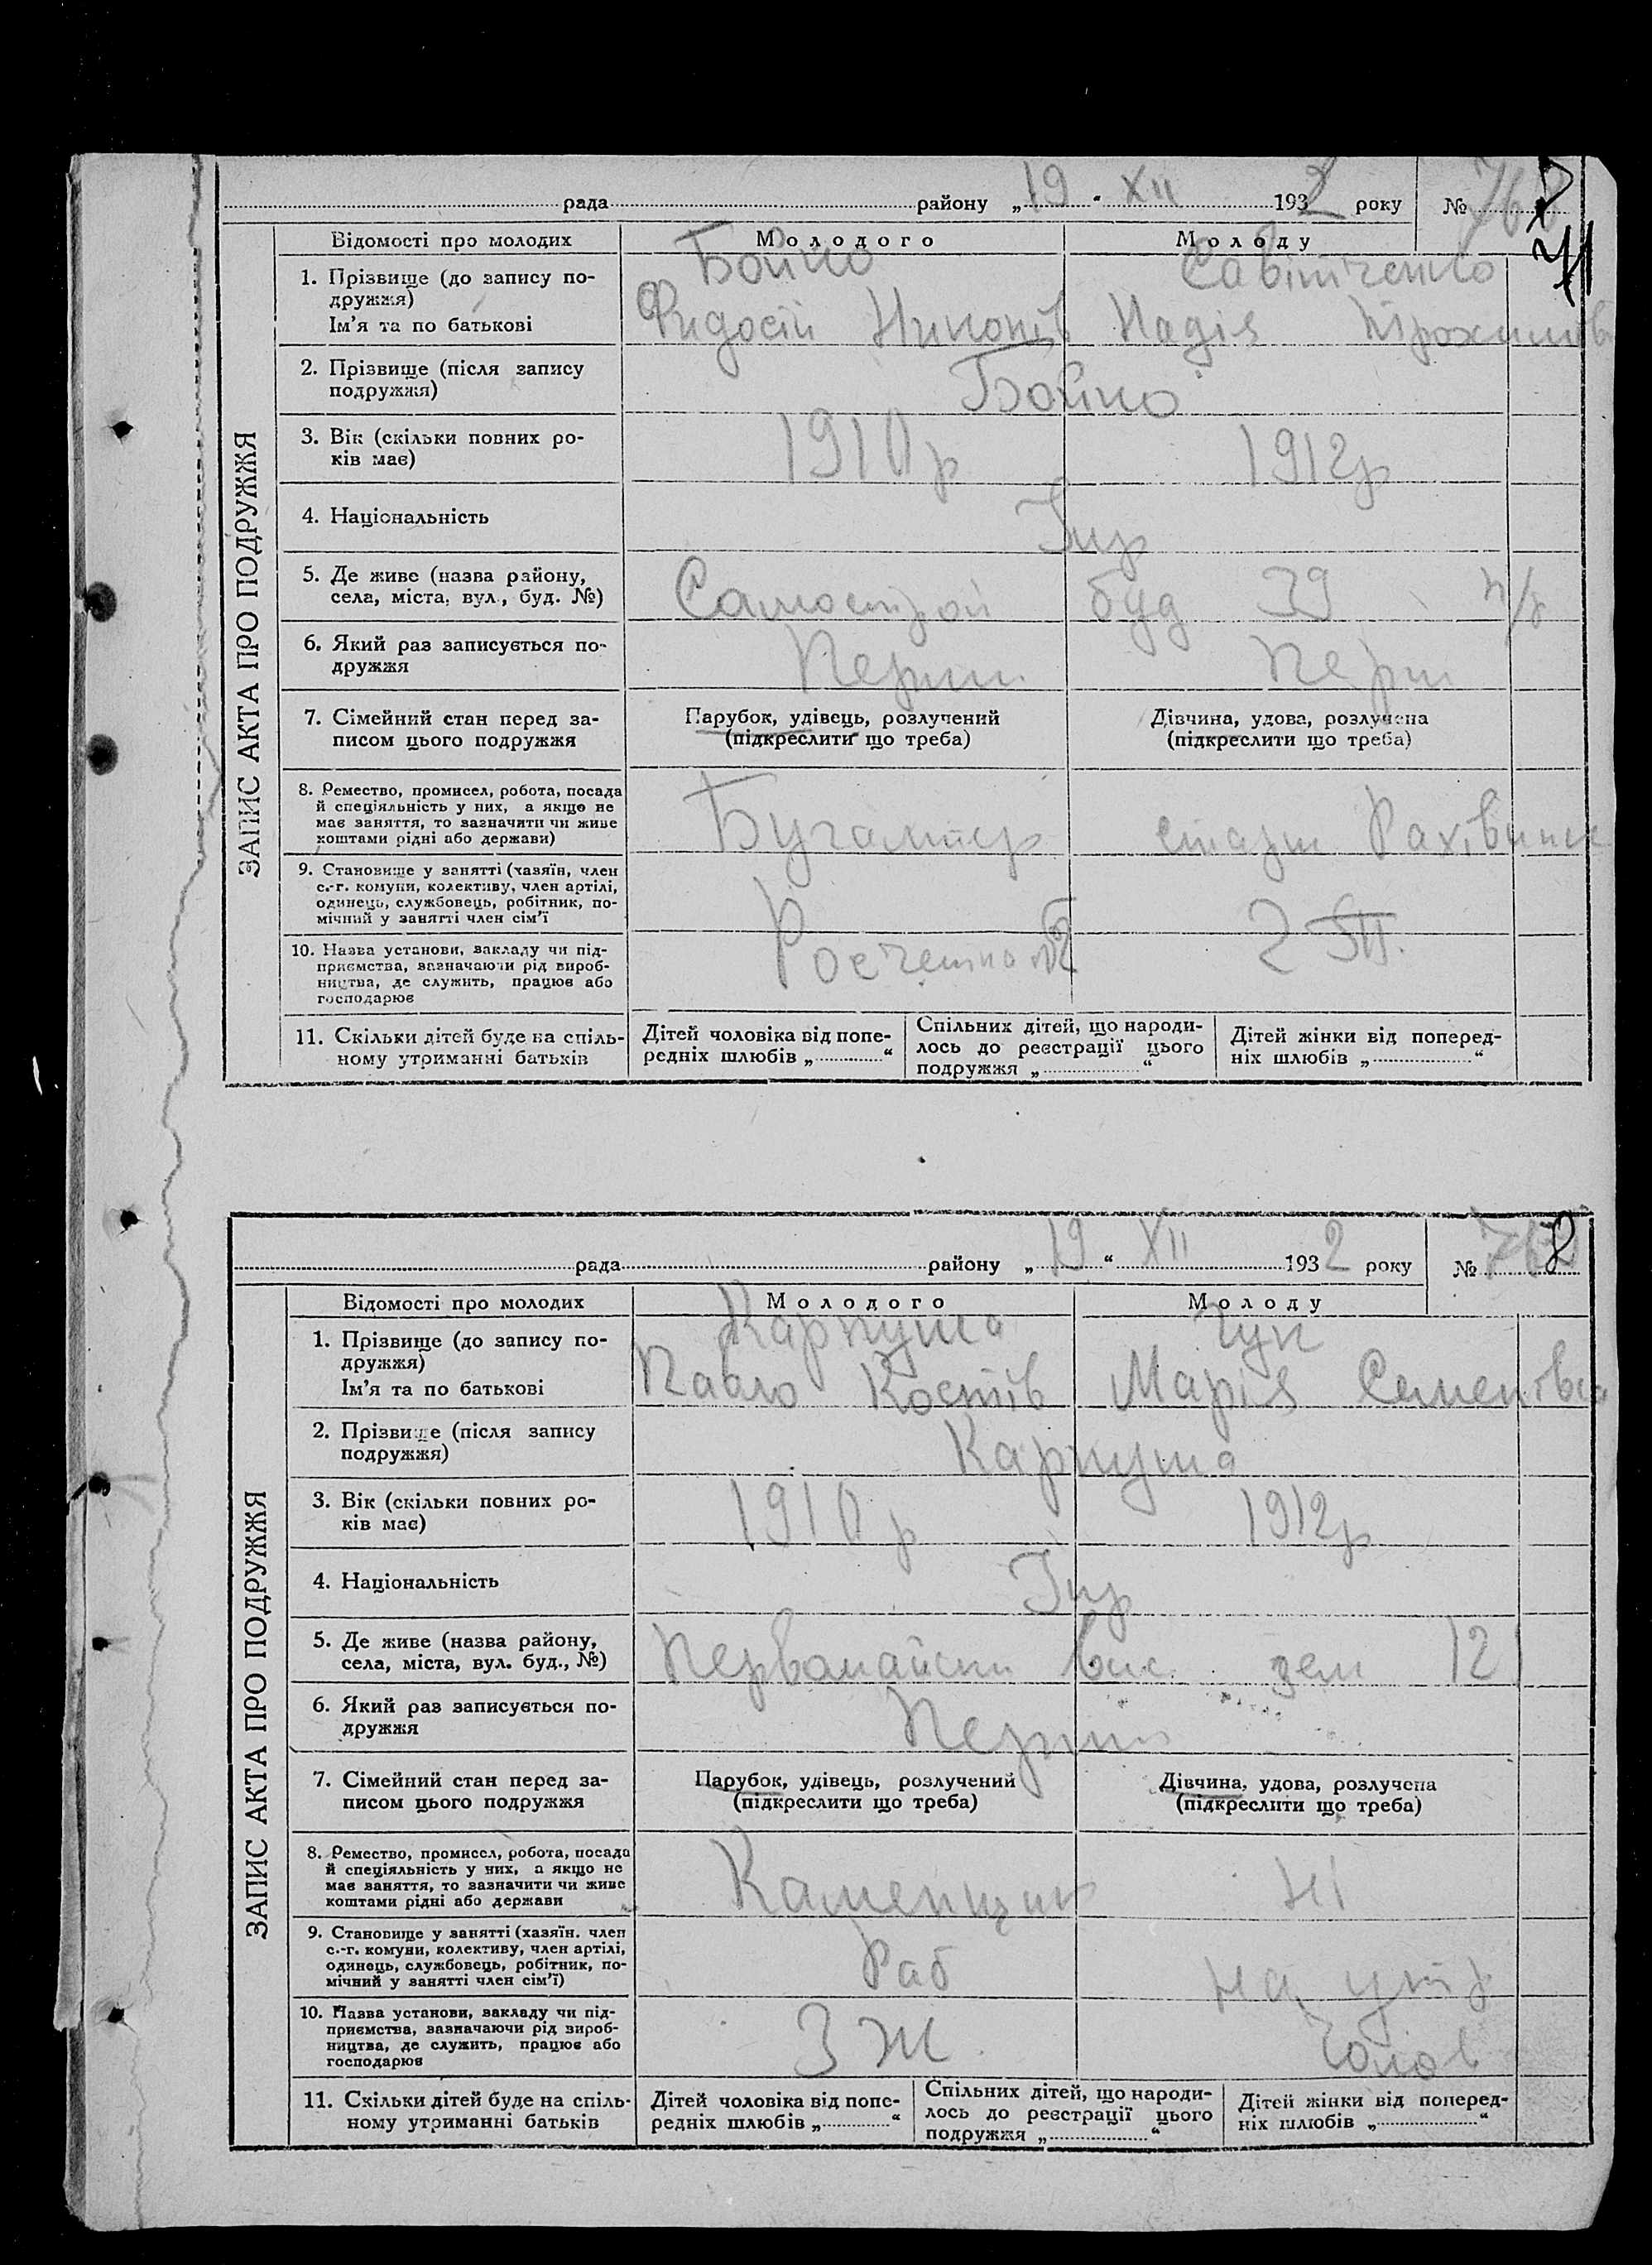 рада района „19“ XII 1932 року № 767
71
ЗАПИС АКТА ПРО ПОДРУЖЖЯ
Відомості про молодих Молодого Молоду
1. Прізвище (до запису по-
дружжя)
Ім’я та по батькові
Бойко
Фидосій Никонів
Надія
2. Прізвище (після запису
подружжя)
Бойко
3. Вік (скільки повних ро-
ків має)
1910р 1912р
4. Національність
Укр
5. Де живе (назва району,
села, міста, вул., буд. №)
Самострой буд 39
6. Який раз записується по-
дружжя
Перш Перш
7. Сімейний стан перед за-
писом цього подружжя
Парубок, удівець, розлучений
(підкреслити що треба)
Дівчина, удова, розлучена
(підкреслити що треба)
8. Ремество, промисел, робота, посада
й спеціяльність у них, а якщо не
має заняття, то зазначити чи живе
коштами рідні або держави)
Бугалтер
9. Становище у занятті (хазяїн, член
с.-г. комуни, колективу, член артілі,
одинець, службовець, робітник, по-
мічний у занятті член сім’ї
10. Назва установи, закладу чи під-
приємства, зазначаючи рід вироб-
ництва, де служить, працює або
господарює
11. Скільки дітей буде на спіль-
ному утриманні батьків
Дітей чоловіка від попе-
редніх шлюбів „ “
Спільних дітей, що народи-
лось до реєстрації цього
подружжя „ “
Дітей жінки від поперед-
ніх шлюбів „ “
рада району „19“ XII 1932 року № 768
ЗАПИС АКТА ПРО ПОДРУЖЖЯ
Відомості про молодих Молодого Молоду
1. Прізвище (до запису по-
дружжя)
Ім’я та по батькові
Карпуша Чук
Павло Костів Марія Семенівна
2. Прізвище (після запису
подружжя)
Карпуша
3. Вік (скільки повних ро-
ків має)
1910р 1912р
4. Національність
Укр
5. Де живе (назва району,
села, міста, вул. буд., №)
Первомайськ вис. зем 121
6. Який раз записується по-
дружжя
Перш
7. Сімейний стан перед за-
писом цього подружжя
Парубок, удівець, розлучений
(підкреслити що треба)
Дівчина, удова, розлучена
(підкреслити що треба)
8. Ремество, промисел, робота, посада
й спеціяльність у них, а якщо не
має заняття, то зазначити чи живе
коштами рідні або держави
Каменщик Ні
9. Становище у занятті (хазяїн. член
с.-г. комуни, колективу, член артілі,
одинець, службовець, робітник, по-
мічний у занятті член сім’ї)
Раб на утр
10. Назва установи, закладу чи під-
приємства, зазначаючи рід вироб-
ництва, де служить, працює або
господарює
ЗЖ Чолов
11. Скільки дітей буде на спіль-
ному утриманні батьків
Дітей чоловіка від попе-
редніх шлюбів „ “
Спільних дітей, що народи-
лось до реєстрації цього
подружжя „ “
Дітей жінки від поперед-
ніх шлюбів „ “